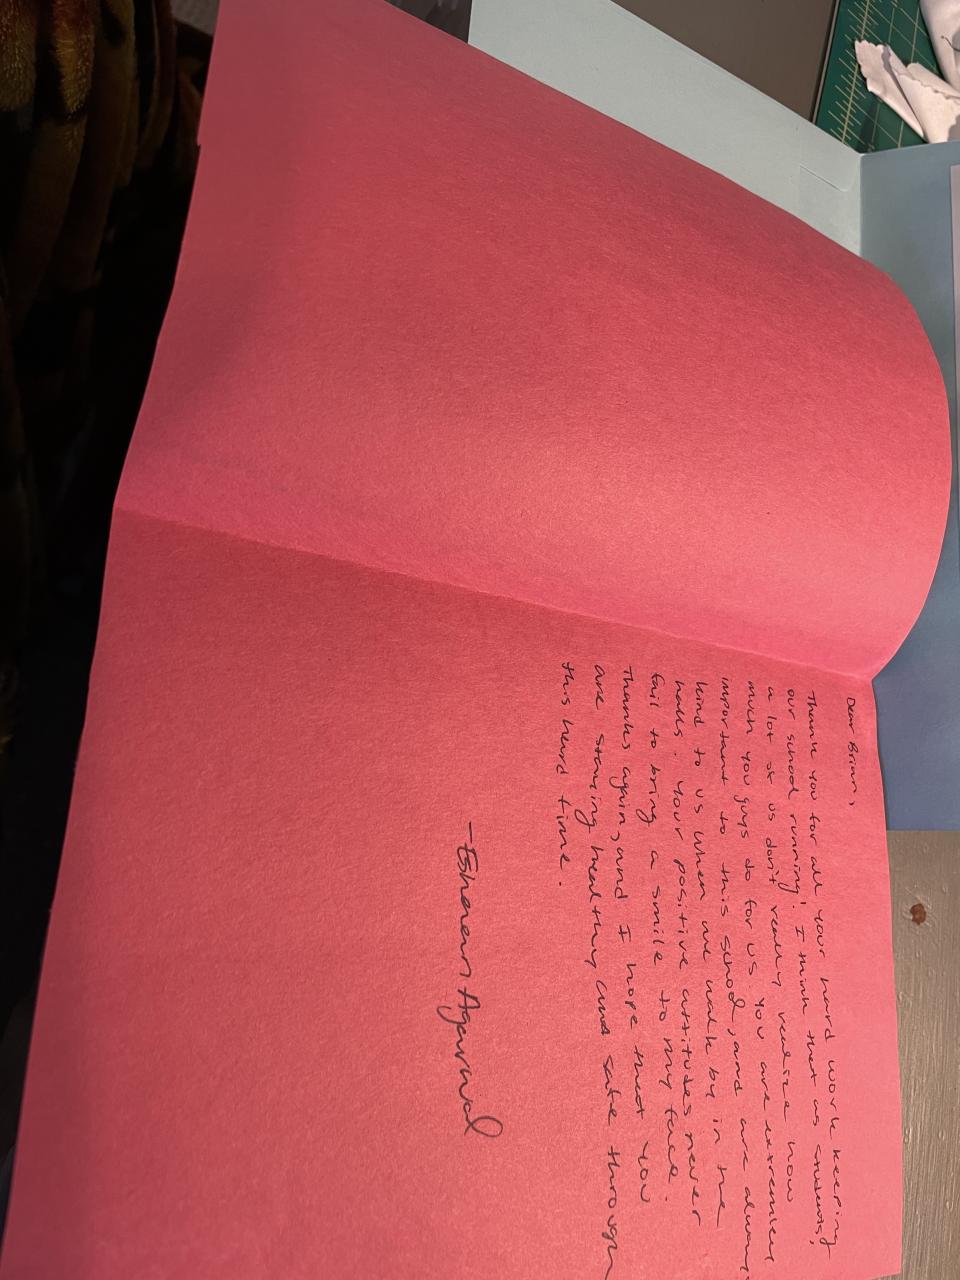 Dear Brian,
Thank you for all your hard work keeping
our school running! I think that as students,
a lot of us don't really realize how
much you guys do for us. You are extremely
important to this school, and are always
kind to us when we walk by in the
halls. Your positive attitudes never
fail to bring a smile to my face.
Thanks again, and I hope that you
are staying healthy and safe through
this hard time.
- Eshaan Agarwal